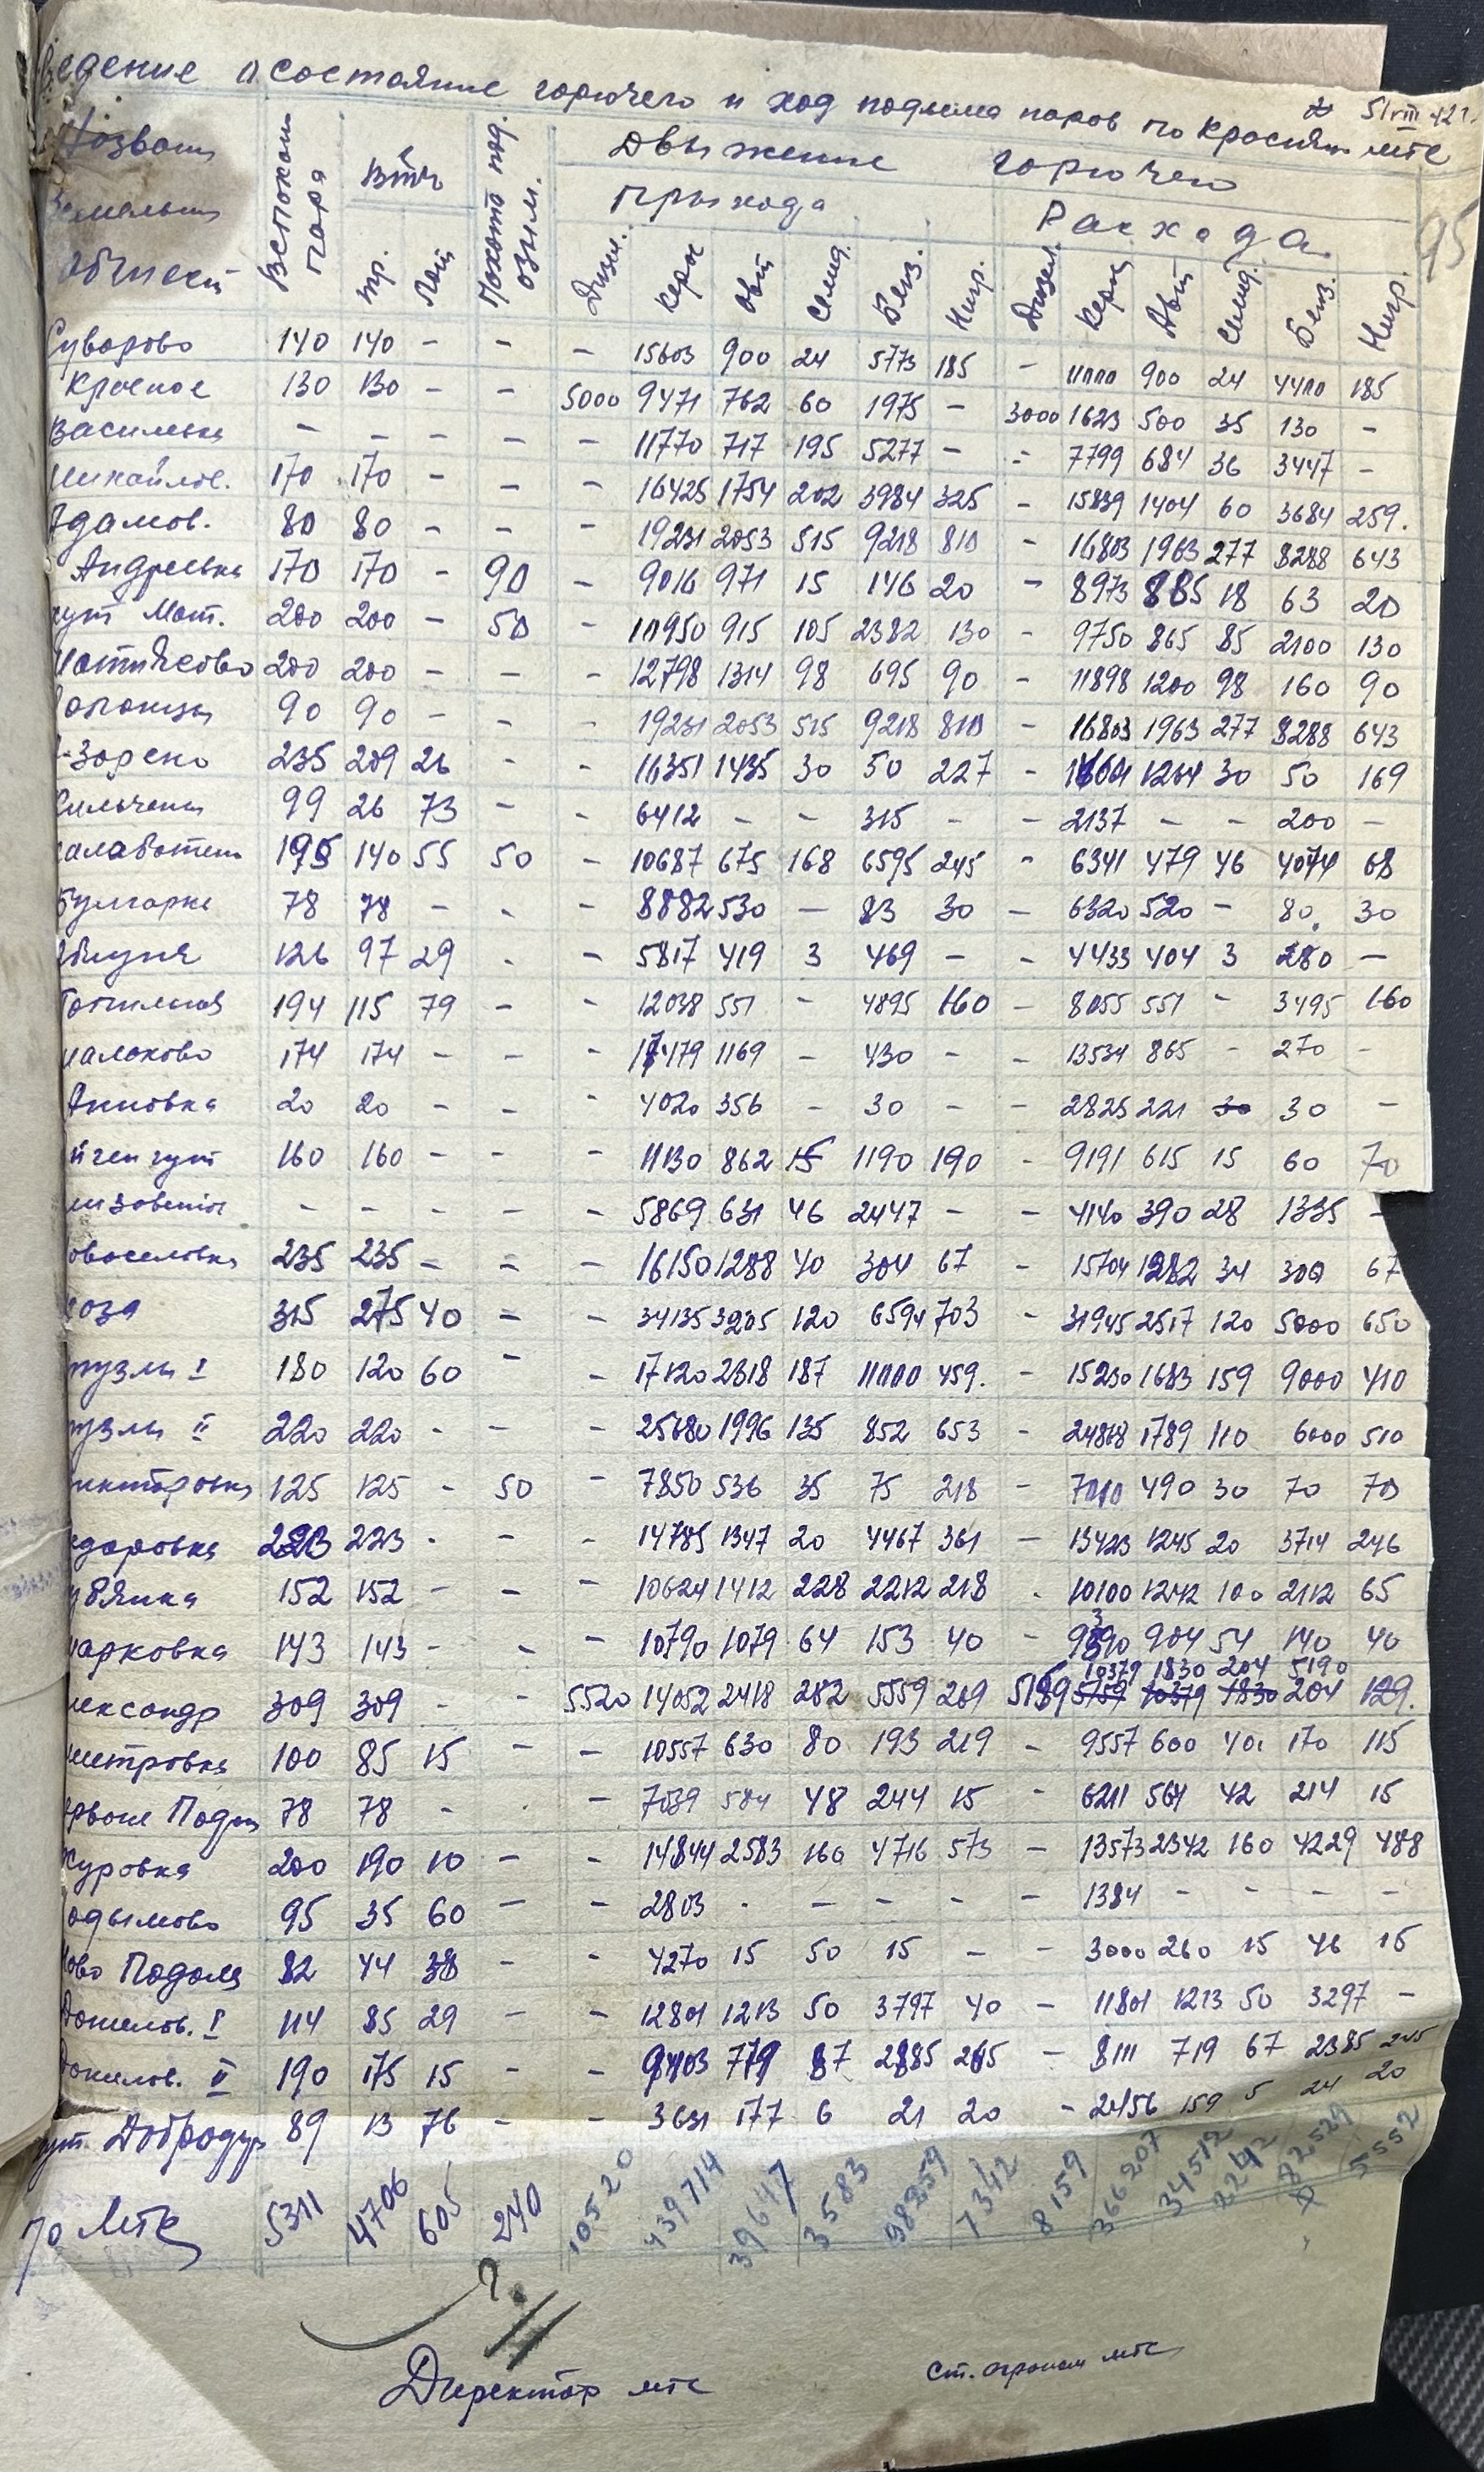 ведение о состояние горючего и ход подъема паров по Красиян мтс
5/VIII 42 г.
95
Назван Вспохан пара В т.ч Пахота под. озим. Движение горючего
Земельн прыхода Расхода
общест тр. Лош Дизел. Керос Авт Семид. Бенз. Нигр. Дизел. Керос Авт Семид Бенз. Нигр.
Суворово 140 140 - - - 15603 900 24 5773 185 - 11000 900 24 4400 185
Красное 130 130 - - 5000 9471 762 60 1975 - 3000 1623 500 35 130 -
Васильевка - - - - - 11770 717 195 5277 - - 7799 684 36 3447 -
Михайлов. 170 170 - - - 16425 1754 202 3984 325 - 15839 1404 60 3684 259.
Адамов. 80 80 - - - 19231 2053 515 9218 810 - 16803 1963 277 8288 643
Андреевка 170 170 - 90 - 9016 971 15 146 20 - 8973 885 18 63 20
хут Мат. 200 200 - 50 - 10950 915 105 2382 130 - 9750 865 85 2100 130
Матиясово 200 200 - - - 12798 1314 98 695 90 - 11898 1200 98 160 90
90 90 - - - 19231 2053 515 9218 810 - 16803 1963 277 8288 643
-Зорено 235 209 26 - - 16351 1435 30 50 227 - 1264 30 50 169
99 26 73 - - 6412 - - 315 - - 2137 - - 200 -
195 140 55 50 - 10687 675 168 6595 245 - 6341 479 46 4074 68
Булгарка 78 78 - - - 8882 530 - 83 30 - 6320 520 - 80. 30
126 97 29 - - 5817 419 3 469 - - 4433 404 3 280 -
194 115 79 - - 12038 551 - 4895 160 - 8055 551 - 3495 160
малаково 174 174 - - - 17479 1169 - 430 - - 13534 865 - 270 -
Анновка 20 20 - - - 4020 356 - 30 - - 2825 221 30 30 -
160 160 - - - 11130 862 15 1190 190 - 9191 615 15 60 70
лизовет - - - - - 5869 631 46 2447 - - 4140 390 28 1335 -
овоселовка 235 235 - - - 16150 1288 40 304 67 - 15704 1282 34 300 67
роза 315 275 40 - - 34135 3205 120 6594 703 - 31945 2517 120 5000 650
рузлы I 180 120 60 - - 17120 2318 187 11000 459. - 15230 1683 159 9000 410
рузлы II 220 220 - - - 25680 1996 135 852 653 - 24868 1789 110 6000 510
икторовка 125 125 - 50 - 7850 536 35 75 218 - 7010 490 30 70 70
едоровка 223 223 - - - 14785 1347 20 4467 361 - 13423 1245 20 3714 246
152 152 - - - 10624 1412 228 2212 218 - 10100 1242 100 2112 65
марковка 143 143 - - - 10790 1079 64 153 40 - 9390 904 54 140 40
10379 1830 204 5190
лександр 309 309 - - 5520 14052 2418 282 5559 269 5159 5759 10379 1830 204 129.
митровка 100 85 15 - - 10557 630 80 193 219 - 9557 600 40. 170 115
78 78 - - 7039 584 48 244 15 - 6211 561 42 214 15
журовка 200 190 10 - - 14844 2583 160 4716 573 - 13573 2342 160 4229 488
адымово 95 35 60 - - 2803 - - - - - 1384 - - - -
Ново Подоля 82 44 38 - - 4270 15 50 15 - - 3000 260 15 46 15
Данилов. I 114 85 29 - - 12801 1213 50 3797 40 - 11801 1213 50 3297 -
Данилов. II 190 175 15 - - 9403 779 87 2885 265 - 8111 719 67 2385 245
хут Добродуж 89 13 76 - - 3631 177 6 21 20 - 2456 159 5 24 20
по Мтс 5311 4706 605 240 10520 439714 39647 3583 98259 7342 8159 366207 34512 2242 82529 5552
Директор мтс
Ст. агроном мтс